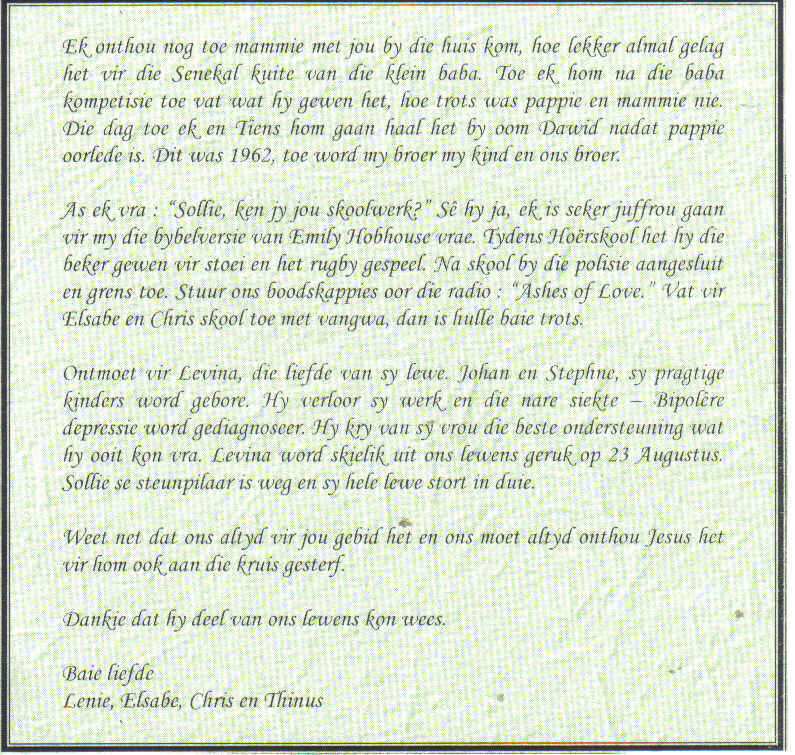 Ek onthou nog toe mammie met jou by die huis kom, hoe lekker almal gelag
het vir die Senekal kuite van die klein baba. Toe ek hom na die baba
kompetisie toe vat wat hy gewen het, hoe trots was pappie en mammie nie.
Die dag toe ek en Tiens hom gaan haal het by oom Dawid nadat pappie
oorlede is. Dit was 1962, toe word my broer my kind en ons broer.
As ek vra : “Sollie, ken jy jou skoolwerk?” Sê hy ja, ek is seker juffrou gaan
vir my die bybelversie van Emily Hobhouse vrae. Tydens Hoërskool het hy die
beker gewen vir stoei en het rugby gespeel. Na skool by die polisie aangesluit
en grens toe. Stuur ons boodskappies oor die radio : “Ashes of Love.” Vat vir
Elsabe en Chris skool toe met vangwa, dan is hulle baie trots.
Ontmoet vir Levina, die liefde van sy lewe. Johan en Stephne, sy pragtige
kinders word gebore. Hy verloor sy werk en die nare siekte – Bipolêre
depressie word gediagnoseer. Hy kry van sÿ vrou die beste ondersteuning wat
hy ooit kon vra. Levina word skielik uit ons lewens geruk op 23 Augustus.
Sollie se steunpilaar is weg en sy hele lewe stort in duie.
Weet net dat ons altyd vir jou gebid het en ons moet altyd onthou Jesus het
vir hom ook aan die kruis gesterf.
Dankie dat hy deel van ons lewens kon wees.
Baie liefde
Lenie, Elsabe, Chris en Thinus